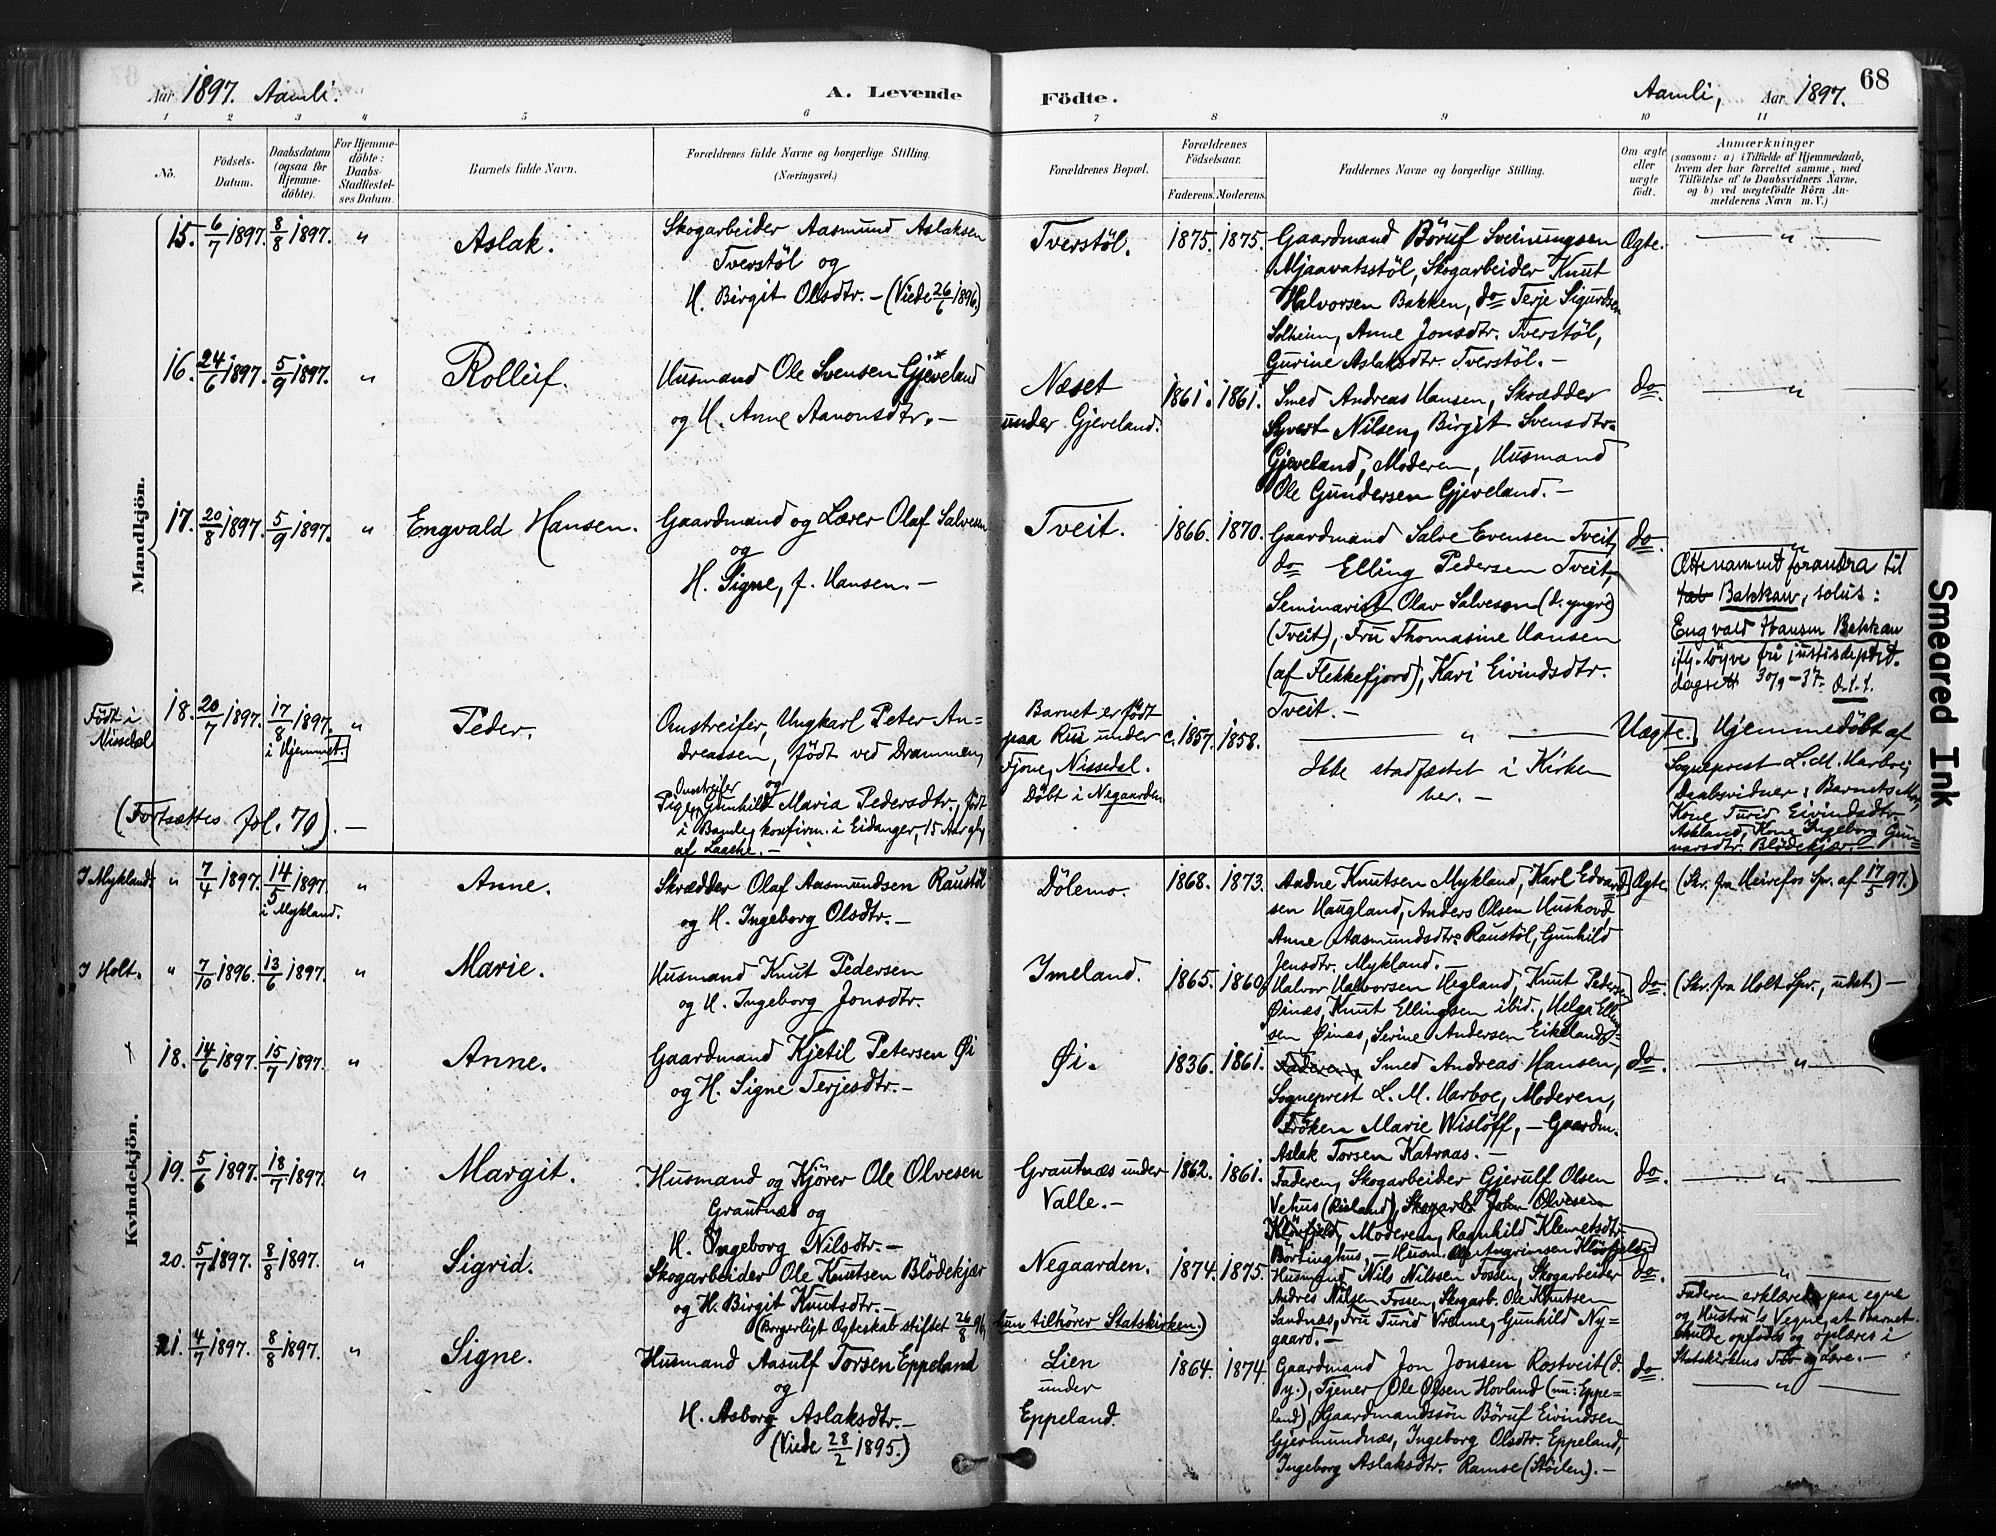 Aar 1897. Aamli.
A. Levende
Födte.
Aamli, Aar 1897.
68
1 2 3 4 5 6 7 8 9 10 11
No.
Födsels-
Datum.
Daabsdatum
(ogsaa for
Hjemme-
döbte).
For Hjemme-
döbte:
Daabs-
Stadfæstel-
ses Datum.
Barnets fulde Navn.
Forældrenes fulde Navne og borgerlige Stilling.
(Næringsvei.)
Forældrenes Bopæl.
Forældrenes
Födselsaar.
Faderens. Moderens.
Faddernes Navne og borgerlige Stilling.
Om ægte
eller
uægte
födt.
Anmærkninger
(saasom: a) i Tilfælde af Hjemmedaab,
hvem der har forrettet samme, med
Tilföielse af to Daabsvidners Navne,
og b) ved uægtefödte Börn An-
melderens Navn m. V.)
Mandkjön.
15. 6/7 1897. 8/8 1897. " Aslak.
Skogarbeider Aasmund Aslaksen
Tverstöl og
H. Birgit Olsdtr. - (Viede 26/6 1896)
Tverstöl. 1875. 1875.
Gaardmand Böruf Sveinungsen
Mjaavatsstöl, Skogarbeider Knut
Halvorsen Bakken, do Terje Sigurdsen
Solheim, Anne Jonsdtr. Tverstöl,
Gurine Aslaksdtr. Tverstöl. -
Ægte. "
16. 24/6 1897. 5/9 1897. " Rolleif.
Husmand Ole Svensen Gjeveland
og H. Anne Aanonsdtr. -
Næset
under Gjeveland.
1861. 1861.
Smed Andreas Hansen, Skrædder
Syvert Nilsen, Birgit Svensdtr.
Gjeveland, Moderen, Husmand
Ole Gundersen Gjeveland. -
do. "
17. 20/8 1897. 5/9 1897. " Engvald Hansen.
Gaardmand og Lærer Olaf Salvesen
og
H. Signe, f. Hansen. -
Tveit. 1866. 1870.
Gaardmand Salve Evensen Tveit,
do Elling Pedersen Tveit,
Seminarist Olav Salveson (d. yngre)
(Tveit), Fru Thomasine Hansen
(af Flekkefjord), Kari Eivindsdtr.
Tveit. -
do. "
Ættenamnet forandra til
Bakkan, solus:
Engvald Hansen Bakkan
iflg. löyve frå justisdeptet.
dagsett 30/9-37. O.t.t.
Födt i
Nissedal
18. 20/7 1897. 17/8 1897.
i Hjemmet. "
Peder.
Omstreifer, Ungkarl Peter An-
dreassen, födt ved Drammen,
og
Omstreifer
Pige Gunhild Maria Pedersdtr., födt
i Bamle, konfirm. i Eidanger, 15 Aar gl.
af Laache. -
Barnet er födt
paa Rui under
Fjone, Nissedal.
Döbt i Negaarden.
c. 1857. 1858.
"
Ikke stadfæstet i Kirken
her. -
Uægte.
Hjemmedöbt af
Sogneprest L. M. Harboe,
Daabsvidner: Barnets Mor,
Kone Turid Eivindsdtr.
Askland, Kone Ingeborg Gun-
narsdtr. Blödekjær. -
(Fortsættes fol. 70). -
Kvindekjön.
I Mykland. " 7/4 1897. 14/5 1897.
i Mykland. "
Anne.
Skrædder Olaf Aasmundsen Raustöl
og H. Ingeborg Olsdtr. -
Dölemo. 1868. 1873.
Aadne Knutsen Mykland, Karl Edvard-
sen Haugland, Anders Olsen Huskovd
Anne Aasmundsdtr. Raustöl, Gunhild
Jensdtr. Mykland. -
Ægte. (Skr. fra Heirefos Spr. af 17/5 97.)
I Holt. " 7/10 1896. 13/6 1897. " Marie.
Husmand Knut Pedersen
og H. Ingeborg Jonsdtr.
Imeland. 1865. 1860.
Halvor Halvorsen Hegland, Knut Pedersen
Øinæs, Knut Ellingsen ibid., Helga Elling-
sen Øinæs, Serine Andersen Eikeland. -
do. (Skr. fra Holt Spr., udat.) -
18. 14/6 1897. 15/7 1897. " Anne.
Gaardmand Kjetil Petersen Øi
og H. Signe Terjesdtr. -
Øi. 1836. 1861.
Faderen, Smed Andreas Hansen,
Sogneprest L. M. Harboe, Moderen,
Fröken Marie Wislöff, - Gaardm.
Aslak Torsen Katraas. -
do. "
19. 5/6 1897. 18/7 1897. " Margit.
Husmand og Kjörer Ole Olvesen
Grautnæs og
H. Ingeborg Nilsdtr. -
Grautnæs under
Valle. -
1862. 1861.
Faderen, Skogarbeider Gjerulf Olsen
Vehus (Risland), Skogarb. John Olvesen
Klöfjeld, Moderen, Ragnhild Klemetsdtr.
Börtinghus, - Husm. Ole Angrimsen Klöfjeld.
do. "
20. 5/7 1897. 8/8 1897. " Sigrid.
Skogarbeider Ole Knutsen Blödekjær
og H. Birgit Knutsdtr. -
(Borgerligt Ægteskab stiftet 26/8 96,
hun tilhörer Statskirken.)
Negaarden. 1874. 1875.
Husmand Nils Nilssen Fossen, Skogarbeider
Andres Nilsen Fossen, Skogarb. Ole Knutsen
Sandnæs, Fru Turid Vrenne, Gunhild Ny-
gaard. -
do. "
Faderen erklærede paa egne
og Hustru's Vegne, at Barnet
skulde opfödes og oplæres i
Statskirkens Tro og Lære. -
21. 4/7 1897. 8/8 1897. " Signe.
Husmand Aasulf Torsen Eppeland
og
H. Asborg Aslaksdtr. -
(Viede 28/2 1895.)
Lien
under
Eppeland.
1864. 1874.
Gaardmand Jon Jonsen Rostveit (d.
y.), Tjener Ole Olsen Hovland (nu: Eppe-
land), Gaardmandssön Böruf Eivindsen
Gjermundnæs, Ingeborg Olsdtr. Eppeland,
Ingeborg Aslaksdtr. Ramse (Stöilen). -
do. "
Smeared Ink